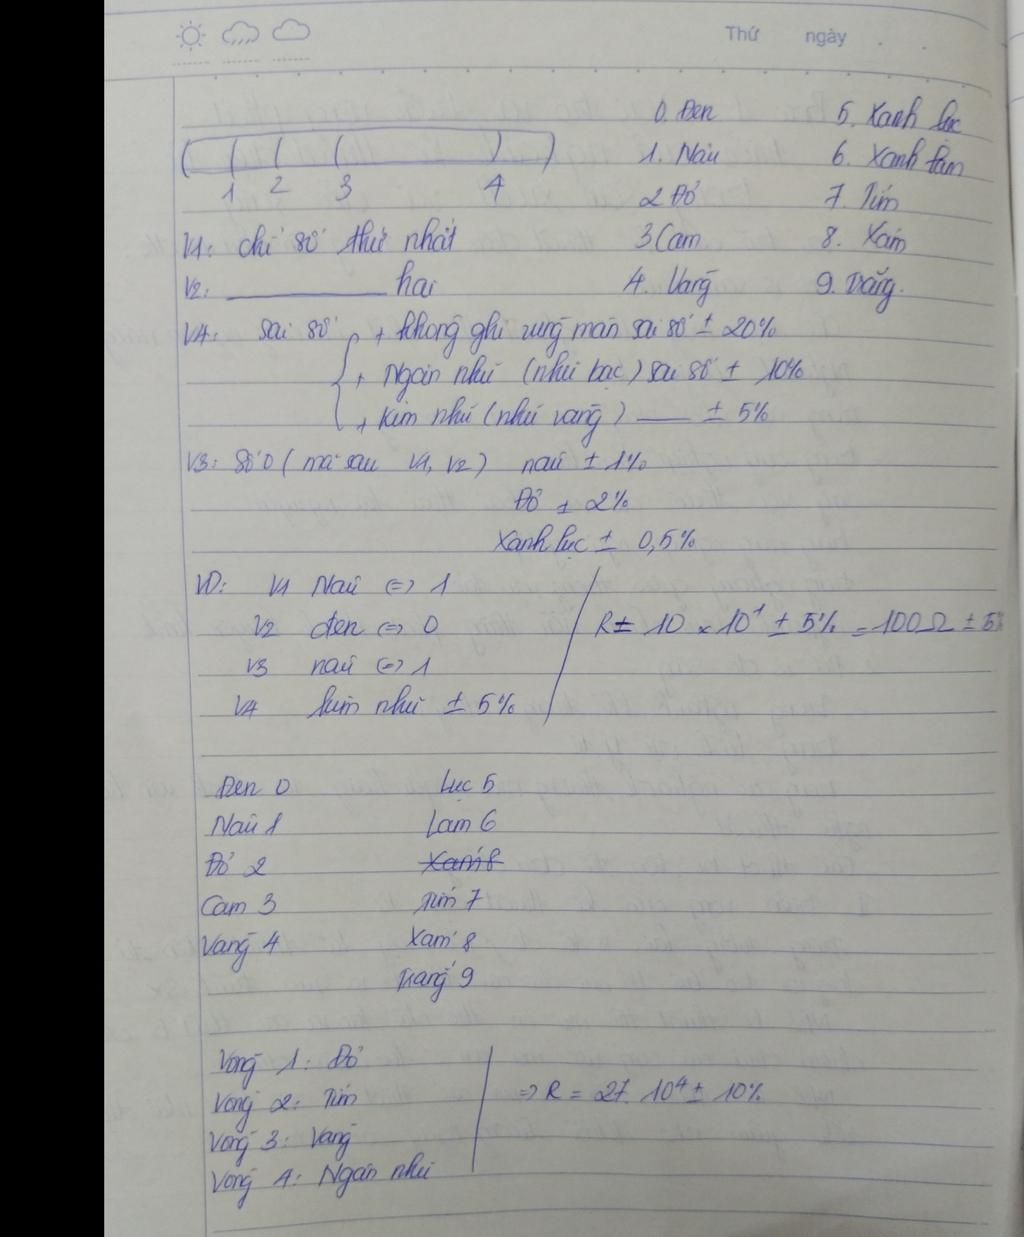 Thứ ngày
0. Đen 5. Xanh lục
1. Nâu 6. Xanh lam
1 2 3 4
2 Đỏ 7. Tím
V1: chỉ số thứ nhất 3 Cam 8. Xám
V2: ———— hai 4. Vàng 9. Trắng.
V4: sai số + không ghi vòng màu sai số ± 20%
+ Ngân nhũ (nhũ bạc) sai số ± 10%
+ Kim nhũ (nhũ vàng) —— ± 5%
V3: số 0 ( mà sau V1, V2) nâu ± 1%
Đỏ ± 2%
Xanh lục ± 0,5%
VD: V1 Nâu <=> 1
V2 đen <=> 0 R± 10 × 10¹ ± 5% = 100Ω ± 5%
V3 nâu <=> 1
V4 kim nhũ ± 5%
Đen 0 Lục 5
Nâu 1 Lam 6
Đỏ 2 Xám 8
Cam 3 Tím 7
Vàng 4 Xám 8
Trắng 9
Vòng 1: Đỏ
Vòng 2: Tím => R = 27. 10⁴ ± 10%
Vòng 3: Vàng
Vòng 4: Ngân nhũ